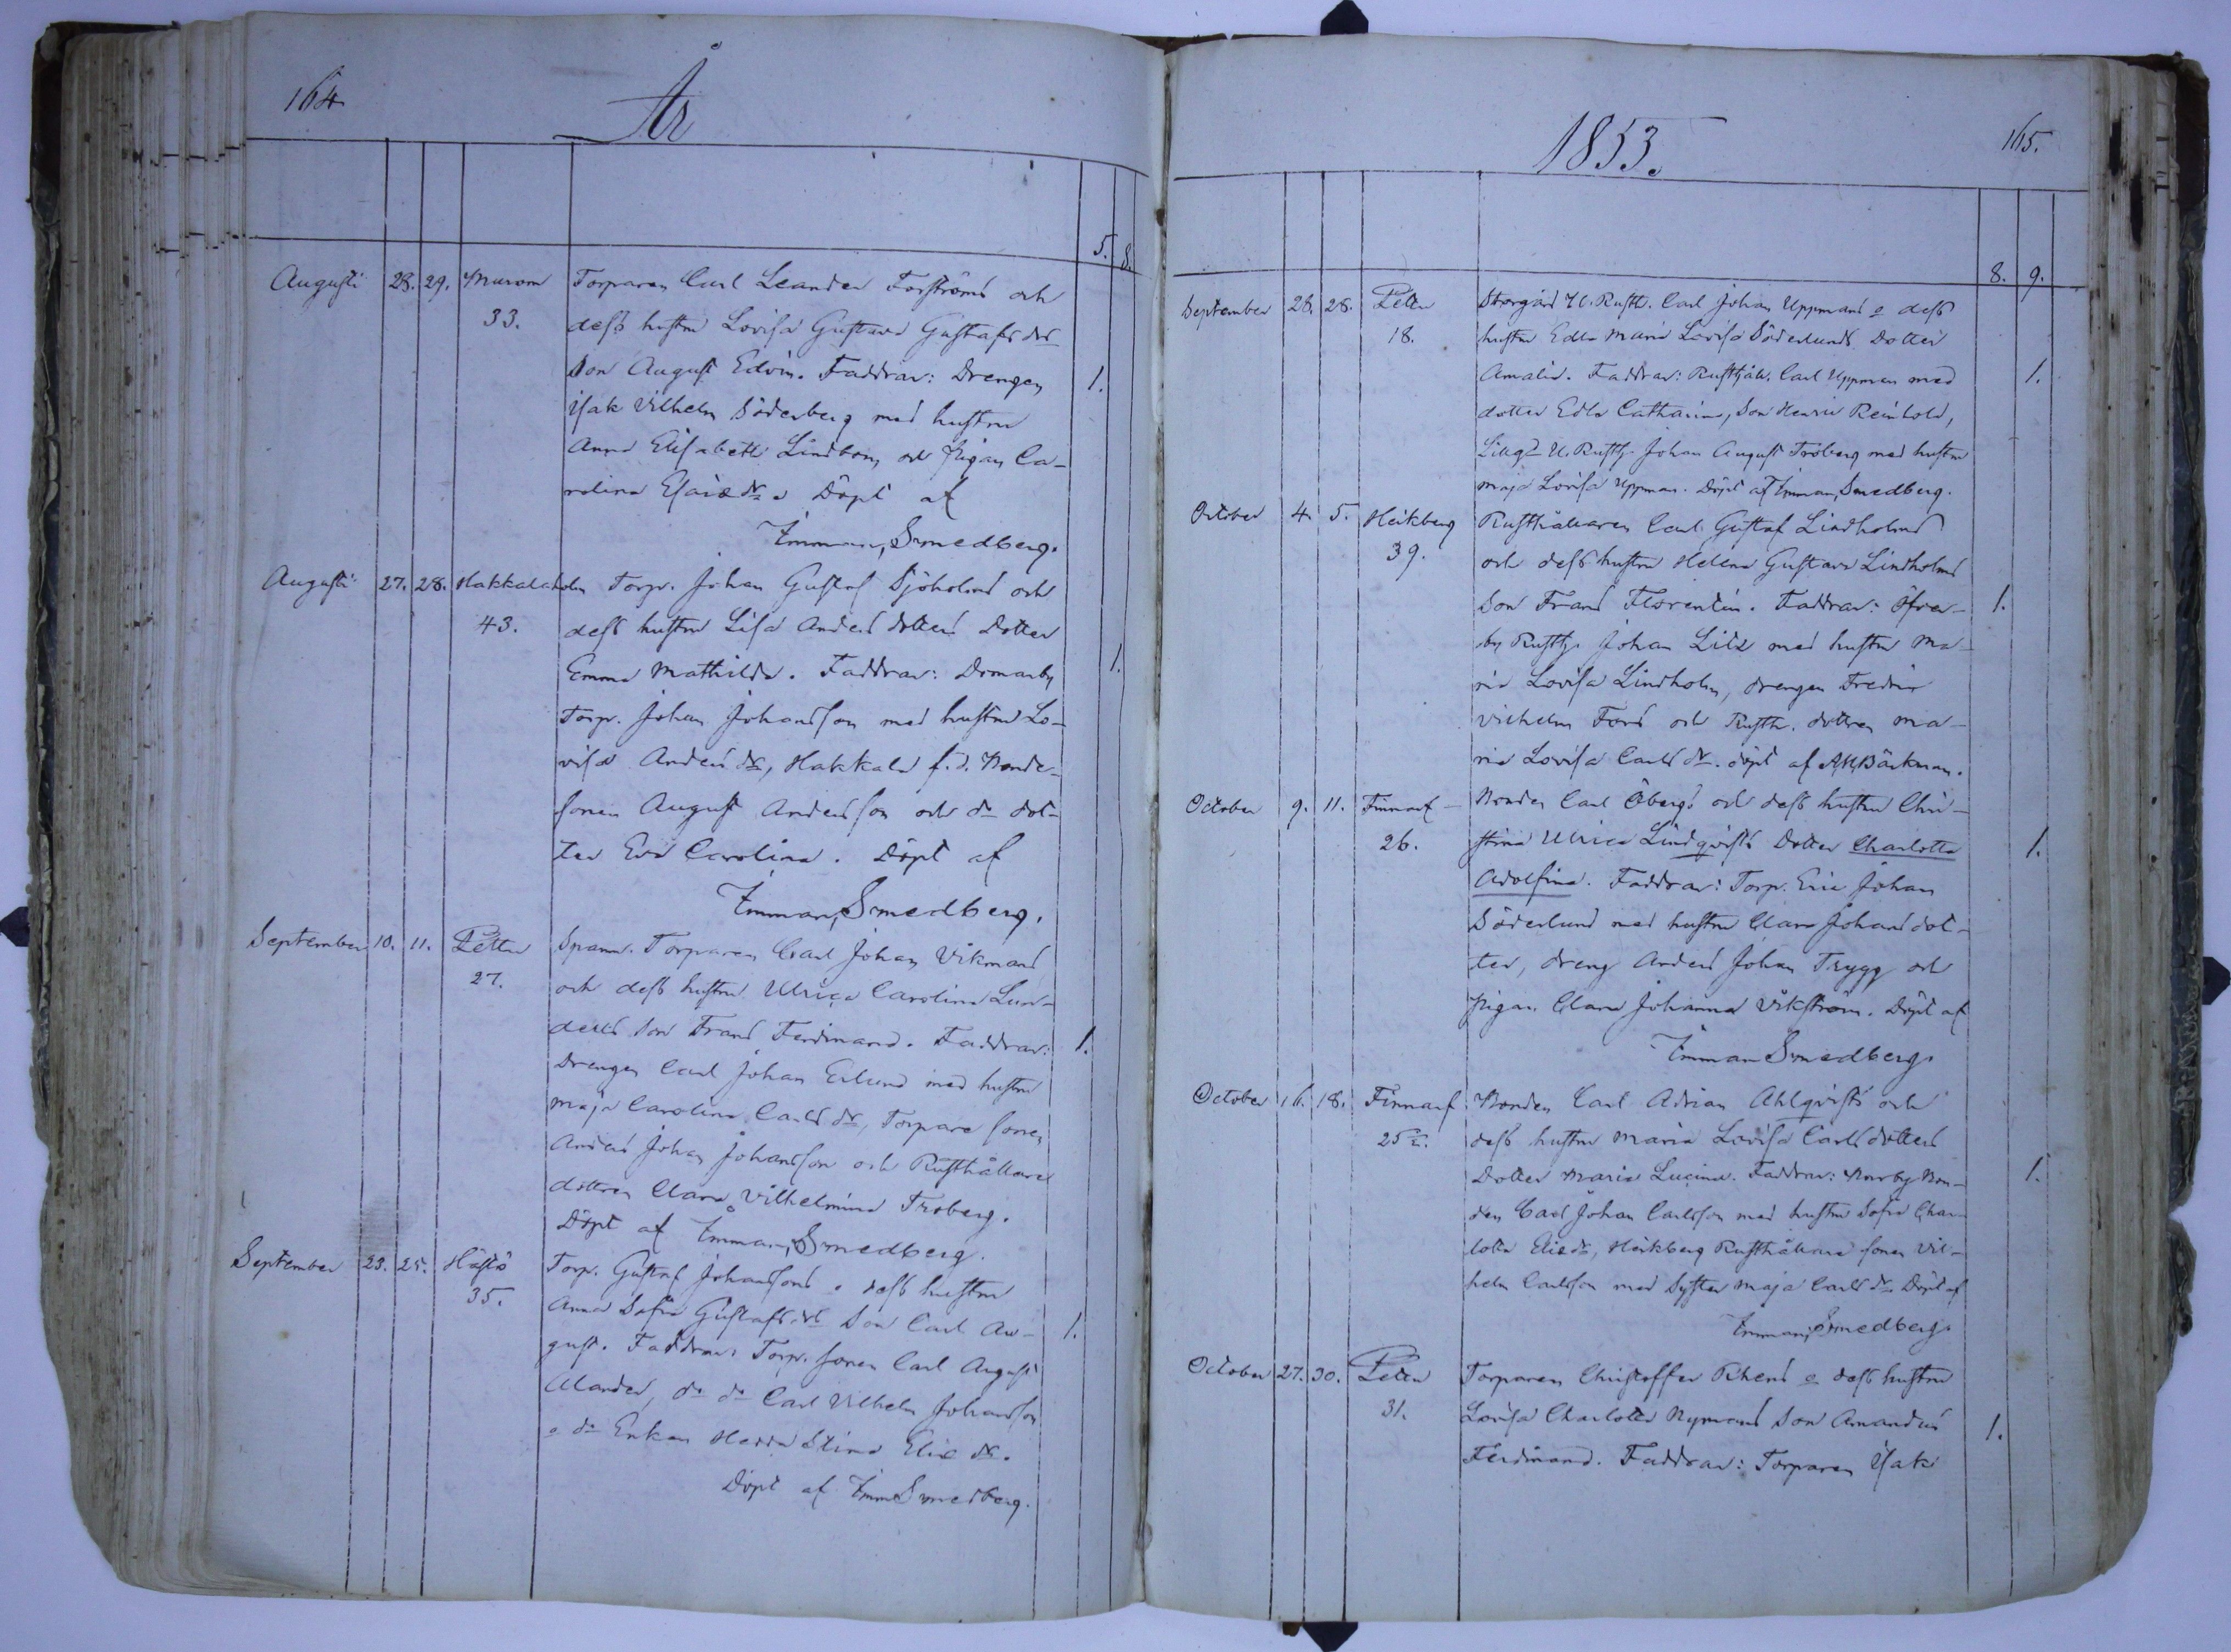 164.
År
5. 8.
Augusti 28. 29. Murom Torparen Carl Leander Forströms och
33. dess hustru Lovisa Gustava Gustafsdrs
Son August Edvin. Faddrar: Drengen 1.
Isak Vilhelm Söderberg med hustru
Anna Elisabeth Lindbom, och Pigan Ca-
rolina Esaiædr. Döpt af
Imman. Smedberg.
Augusti 27. 28. Hakkalaholm Torp. Johan Gustaf Sjöholms och
43. dess hustru Lisa Andersdotters Dotter
Emma Mathilda. Faddrar: Domarby 1.
Torp. Johan Johansson med hustru Lo-
visa Andersdr, Hakkala f.d. Bonde-
sonen August Andersson och do dot-
ter Eva Carolina. Döpt af
Imman. Smedberg.
September 10. 11. Petter Spanm. Torparen Carl Johan Vikmans
27. och dess hustru Ulrica Carolina Lun-
ders Son Frans Ferdinand. Faddrar: 1.
Drengen Carl Johan Erlund med hustru
Maja Carolina Carlsdr, Torpare sonen
Anders Johan Johansson och Rusthållare
dottren Clara Vilhelmina Froberg.
Döpt af Imman. Smedberg.
September 23. 25. Hästö Torp. Gustaf Johanssons o dess hustru
35. Anna Sofia Gustafsdrs Son Carl Au- 1.
gust. Faddrar: Torp. sonen Carl August
Alander, do do Carl Vilhelm Johansson
o do Enkan Hedda Stina Eliædr.
Döpt af Imm. Smedberg.
1853.
165.
8. 9.
September 26. 28. Petter Storgård Rusth. Carl Johan Uppmans o dess
18. hustru Edla Maria Lovisa Söderlunds Dotter
Amalia. Faddrar: Rusthåll. Carl Uppman med 1.
dotter Edla Catharina, Son Henric Reinhold,
Rusth. Johan August Fröberg med hustru
Maja Lovisa Uppman. Döpt af Imman. Smedberg.
October 4. 5. Heikberg Rusthållaren Carl Gustaf Lindholms
39. och dess hustru Helena Gustava Lindholms
Son Frans Florentin. Faddrar: Öfver- 1.
by Rusth. Johan Lilz med hustru Ma-
ria Lovisa Lindholm, drengen Fredric
Vilhelm Fors och Rusth. dottren Ma-
ria Lovisa Carlsdr. döpt af A.H. Bäckman.
October 9. 11. Finnarf- Bonden Carl Öbergs och dess hustru Chri-
26. stina Ulrica Lindqvists Dotter Charlotta 1.
Adolfina. Faddrar: Torp. Eric Johan
Söderlund med hustru Clara Johansdot-
ter, dreng Anders Johan Trygg och
Pigan Clara Johanna Vikström. Döpt af
Imman Smedberg.
October 16. 18. Finnarf Bonden Carl Adrian Ahlqvists och
25 dess hustru Maria Lovisa Carlsdotters
Dotter Maria Lucina. Faddrar: Norrby Bon- 1.
den Carl Johan Carlsson med hustru Sofia Char-
lotta Eliædr, Heikberg Rusthållare sonen Vil-
helm Carlsson med Syster Maja Carlsdr Döpt af
Imman. Smedberg.
October 27. 30. Petter Torparen Christoffer Rhens o dess hustru
31. Lovisa Charlotta Nymans Son Amandus 1.
Ferdinand. Faddrar: Torparen Isak